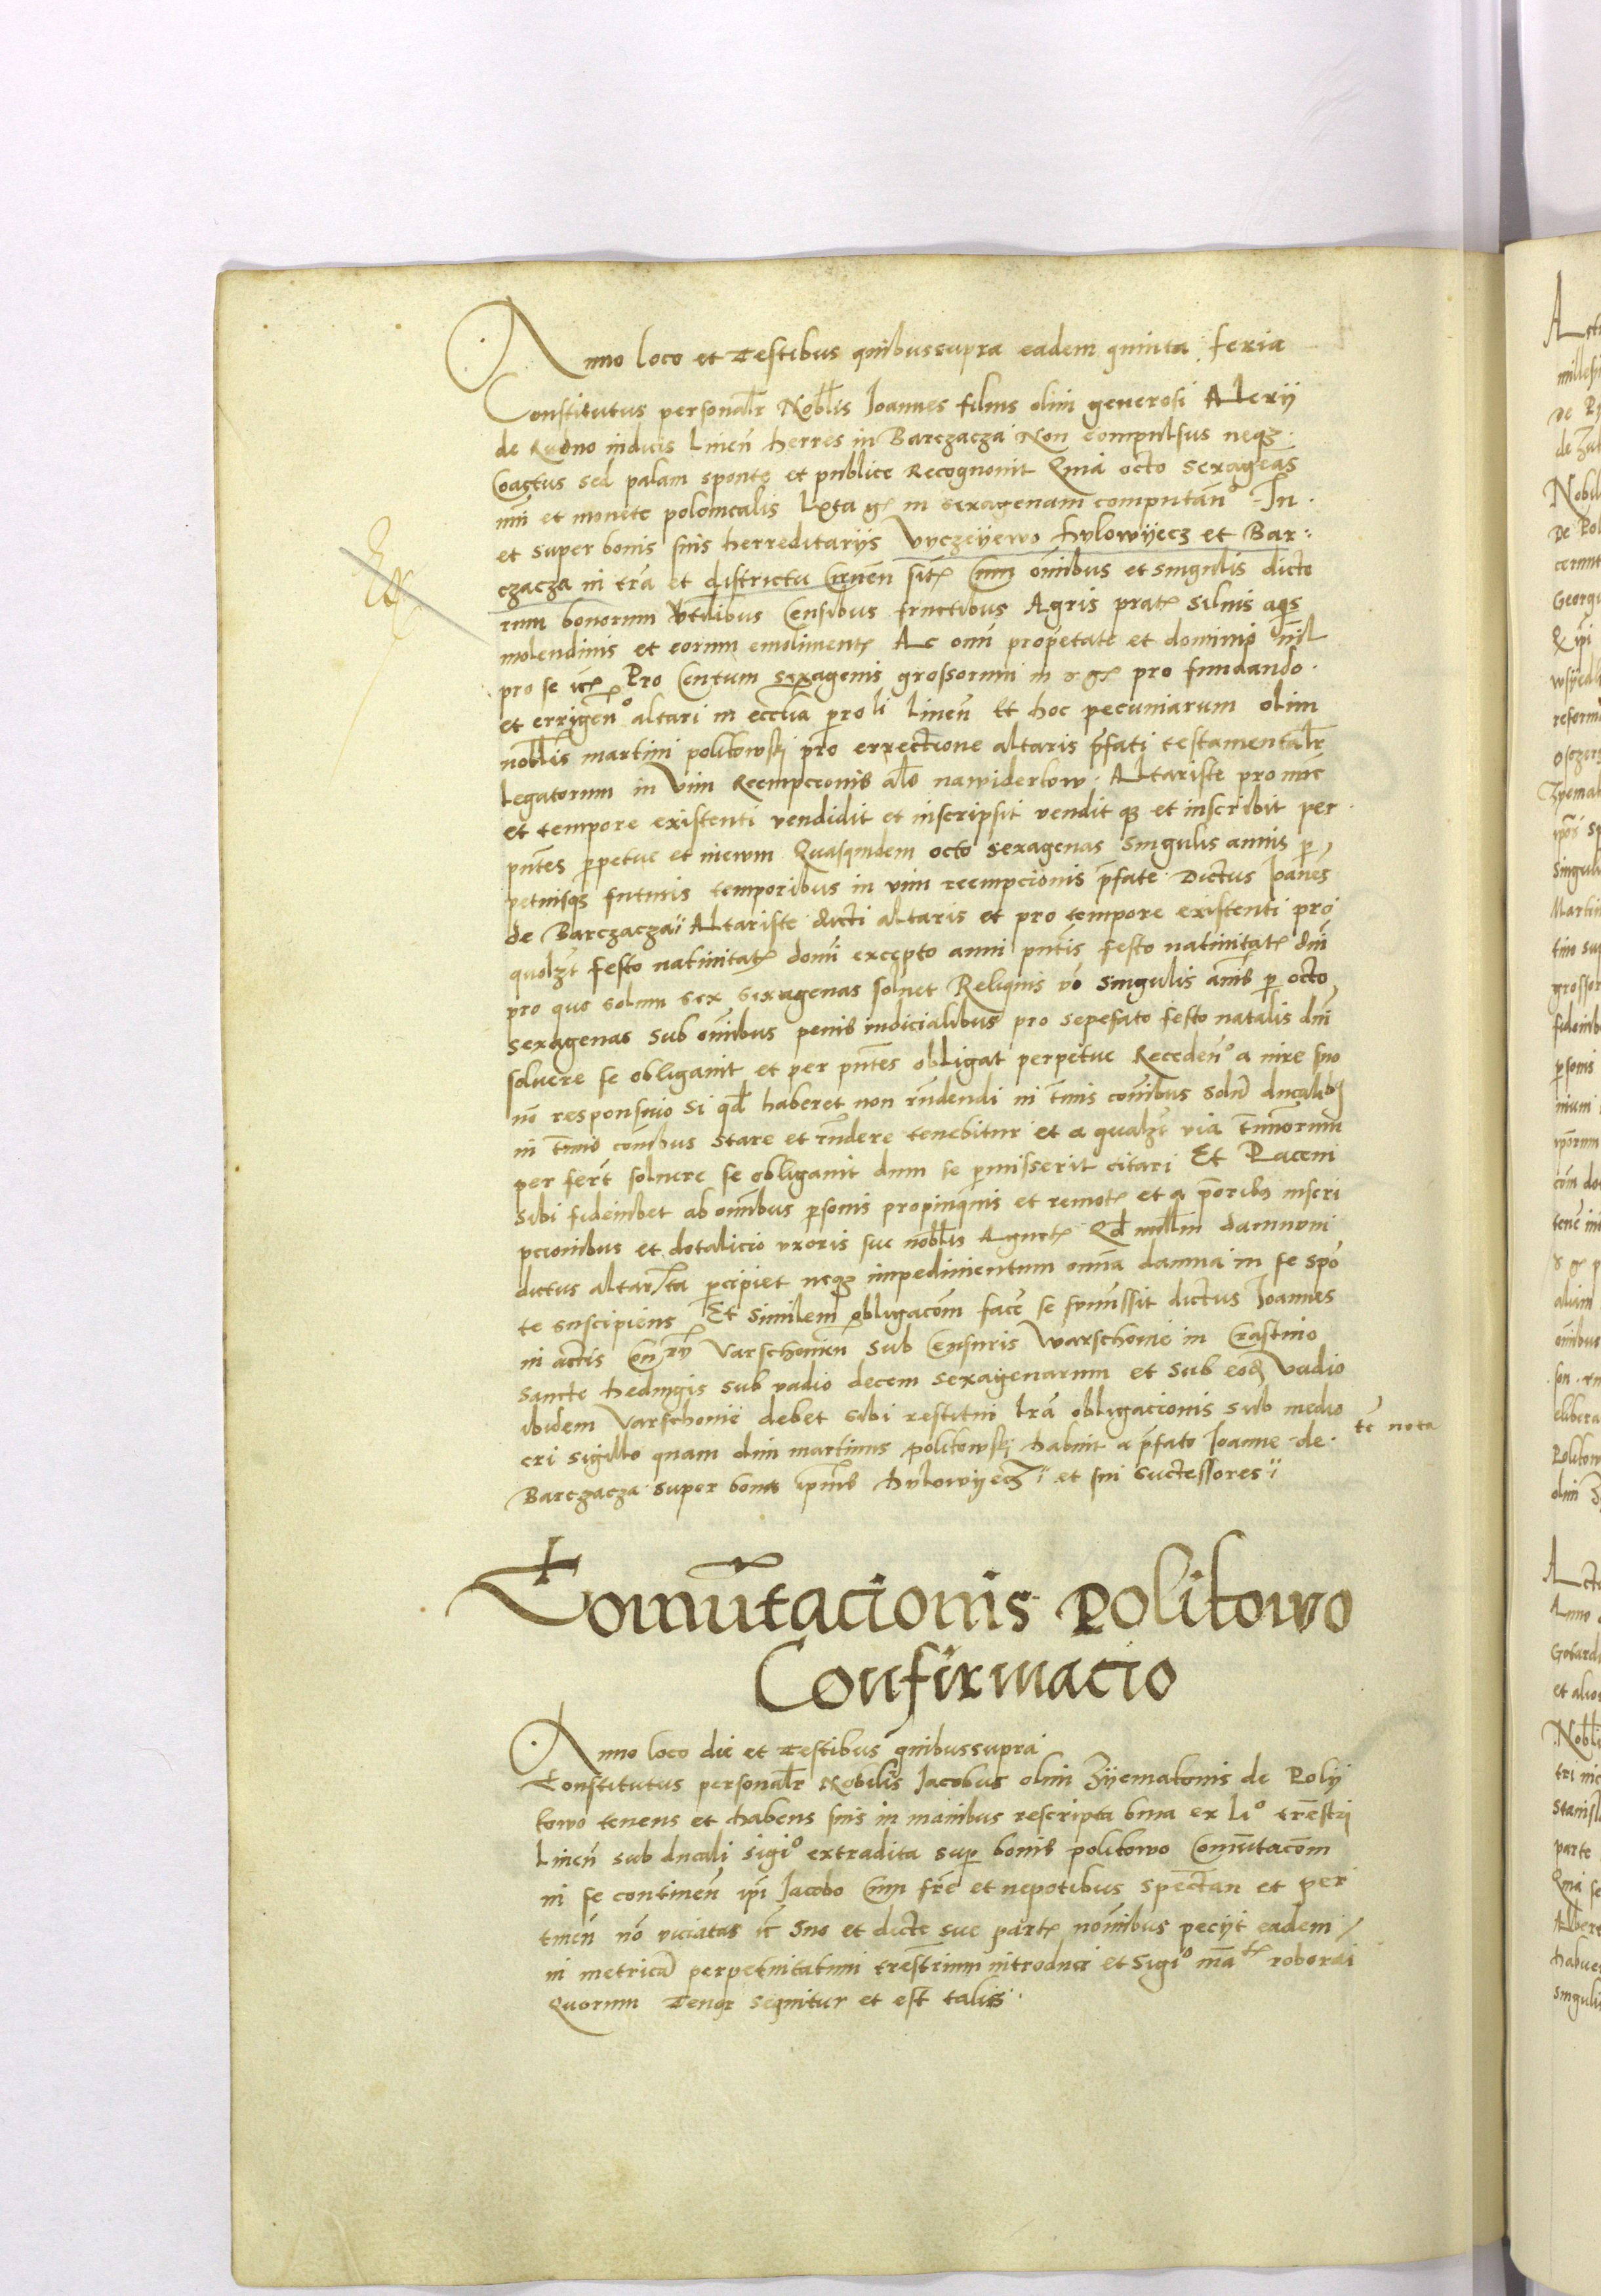 Anno loco et Testibus quibussupra eadem quinta feria
Constitutus personalr Noblis Joannes filius olim generosi Alexij
de Rudno iudicis Liuen herres in Barczacza Non compulsus neqz
Coactus sed palam sponte et publice Recognouit Quia octo sexagenas
et monete polonicalis Lxta gr in sexagenam computan In
et super bonis suis herreditarijs Vyczeyewo hylowijecz et Bar:
czacza in tra et districtu Cum omibus et singulis dicto
rum bonorum vtilibus Censibus fructibus Agris prat siluis aqs
molendinis et eorum emoliment Ac omi proprietate et dominio nijl
pro se Pro Centum sexagenis grossorum in pro fundando
et errigen altari in ecctia Liuen Et hoc pecuniarum olim
noblis martini politowskj pro errectione altaris pfati testamentalr
Legatorum in Vim Reempcionis als nawiderkow Altariste pro nuc
et tempore existenti vendidit et inscripsit vendit qz et inscribit per
pntes ppetue et in ewm Quasquidem octo sexagenas singulis annis p
petuisqs futuris temporibus in vim reempcionis pfate Dictus Joanes
de Barczacza Altariste dicti altaris et pro tempore existenti pro
quolzt festo natiuitatz domi excepto anni pntis festo natiuitatz dni
pro quo solum sex sexagenas soluet Reliquis vo singulis anis p octo
sexagenas sub omibus penis iudicialibus pro sepefato festo natalis dni
soluere se obligauit et per pntes obligat perpetue Receden a iure suo
no responsiuo si qd haberet non rndendi in tmis comibus solu ducalibz
in tmis comibus stare et rndere tenebitur et a qualzt via tmorum
per fert soluere se obligauit dum se pmisserit citari Et Paceni
sibi fideiubet ab omibus psonis propinquis et remot et a prioribz inscri
pcionibus et dotalicio vxoris sue noblis Agnet Qd nullm damnum
dictus altarista pcipiet neqz impedimentum omia damna in se spo
te suscipiens Et similem obligacom face se summissit dictus Joannes
in actis Varschouien sub Censuris Warschouie in Crastino
sancte hedingis sub vadio decem sexagenarum et sub eod vadio
ibidem Varschouie debet sibi restitui lra obligacionis sub medio
cri sigillo quam olim martinus politowskj habuit a pfato Joanne de
te nota
Barczacza super bona hylowijecz et sui successores

Comutacionis Politowo
Confirmacio
Anno loco die et Testibus quibussupra
Constitutus personalr Nobilis Jacobus olim Zyematonis de Polij
towo tenens et habens suis in manibus rescripta bina ex Lio trestri
Liuen sub ducali sigio extradita sup bonis politowo Comutacom
in se continen ipi Jacobo Cum fre et nepotibus spectan et per
tinen no viciatas suo et dicte sue part noibus pecijt eadem
in metrica perpetuitatum trestrium introduci et sigio roborari
Quorum Tenor sequitur et est talis